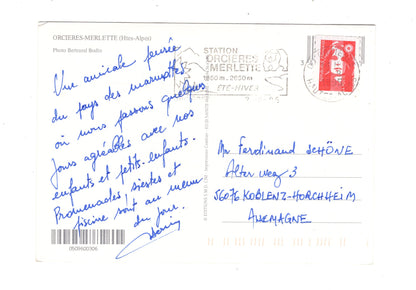 ORCIERES-MERLETTE (Htes-Alpes)
Photo Bernard Bodin
STATION
ORCIERES
MERLETTE
1850 m. 2650 m.
ETE-HIVER
Une amicale pensée
du pays des marmottes
où nous passons quelques
jours agréables avec nos
enfants et petits-enfants.
Promenades, siestes et
piscine sont au menu
du jour.
Mr Ferdinand SCHÖNE
Alter weg 3
56076 KOBLENZ-HORCHHEIM
ALLEMAGNE